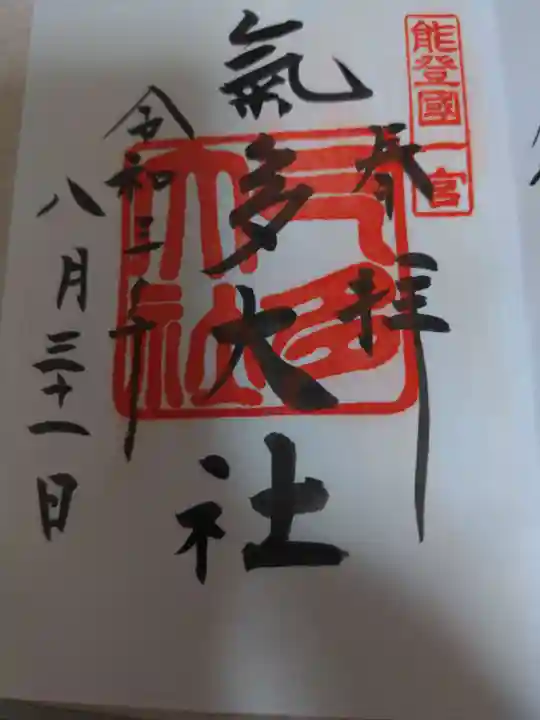 能登國一宮
奉拝
氣多大社
令和三年
八月三十一日